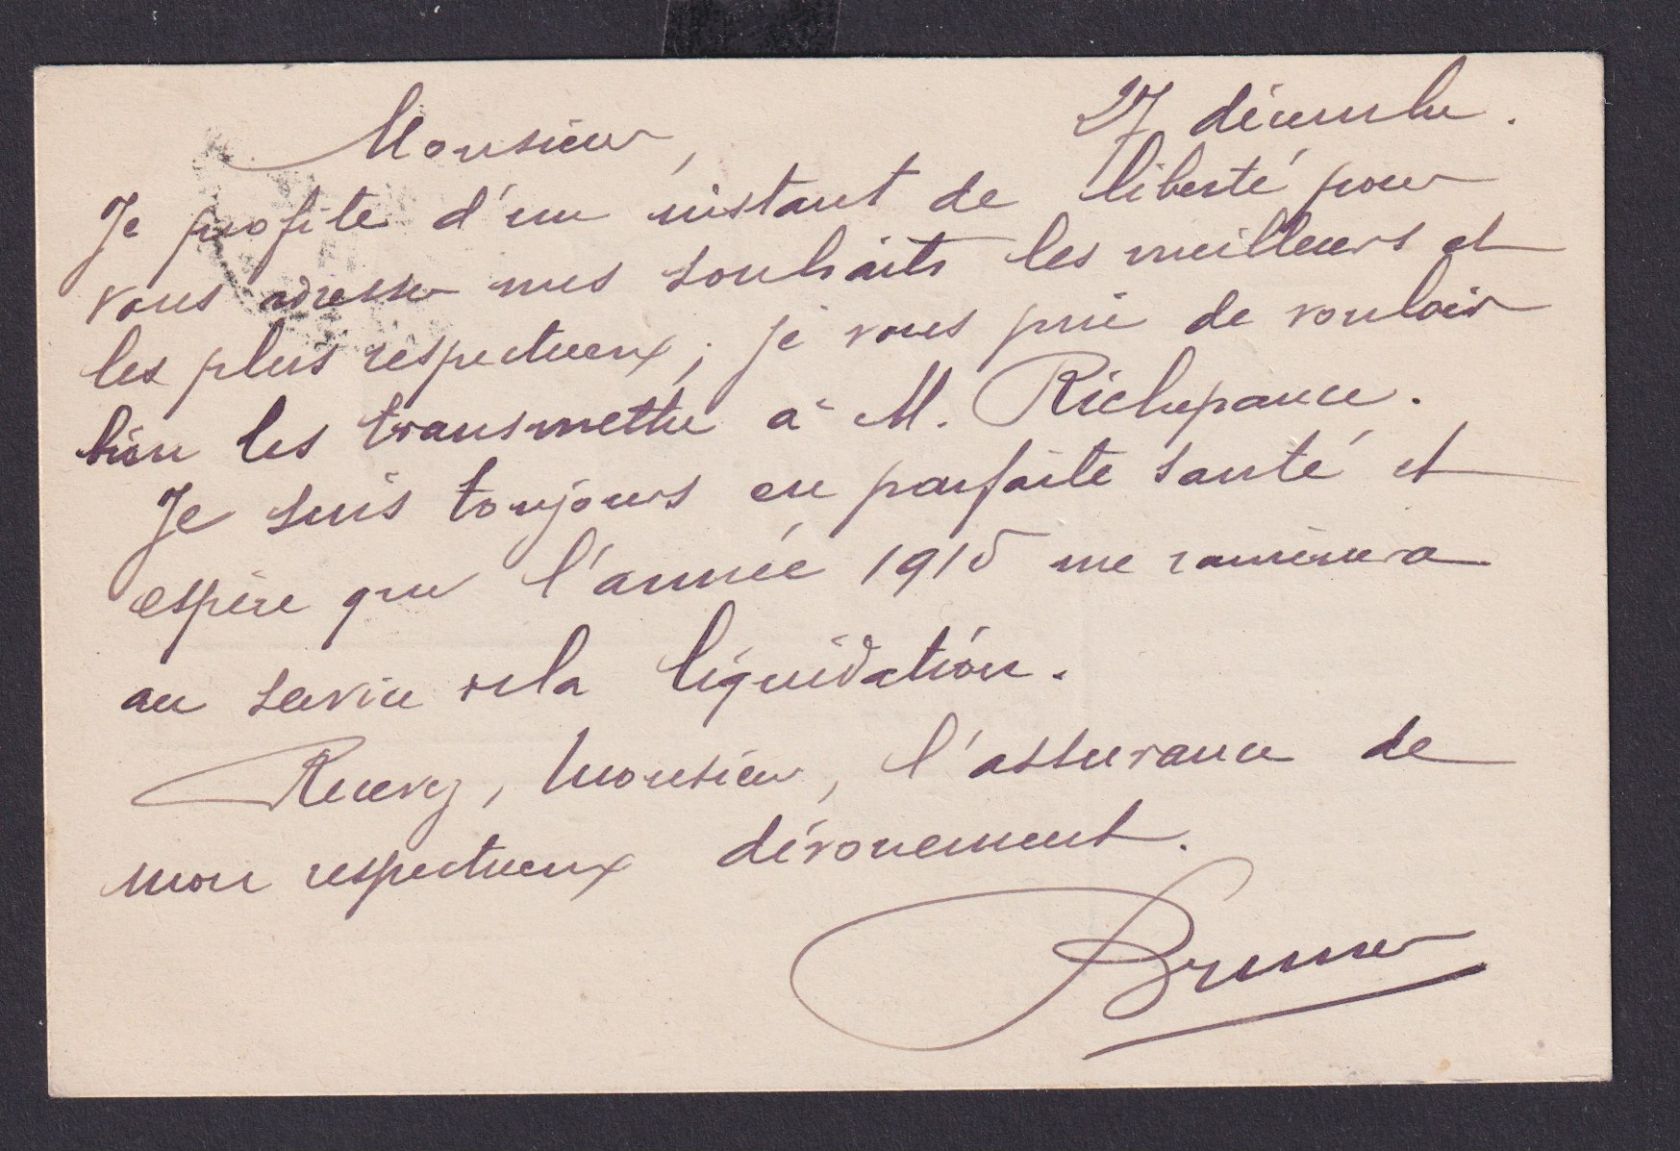 27 décembre.
Monsieur,
Je profite d'un instant de liberté pour
vous adresser mes souhaits les meilleurs et
les plus respectueux; je vous prie de vouloir
bien les transmettre à M. Richepance.
Je suis toujours en parfaite santé et
espère que l'année 1915 me ramènera
au service de la liquidation.
Recevez, Monsieur, l'assurance de
mon respectueux dévouement.